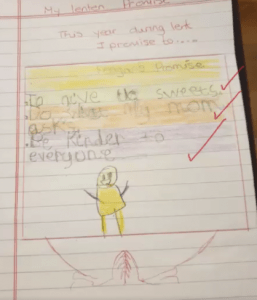 My lenten Promise
This year during lent
I promise to.....
Promise
To give up sweets.
my mom
asks.
Be kinder to
everyone